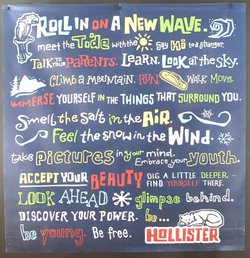 ROLL IN ON A NEW WAVE.
meet the Tide with the SAY HI to a stranger.
TALK TO YOUR PARENTS. LEARN. LOOK at the SKY.
CLIMB A MOUNTAIN. RUN. WALK. MOVE.
IMMERSE YOURSELF IN THE THINGS THAT SURROUND YOU.
Smell the salt in the AIR.
Feel the snow in the WIND.
take PICTURES in your mind. Embrace your youth.
ACCEPT YOUR BEAUTY DIG A LITTLE DEEPER- FIND YOURSELF THERE.
LOOK AHEAD glimpse behind.
DISCOVER YOUR POWER. be...
be young. Be free. HOLLISTER